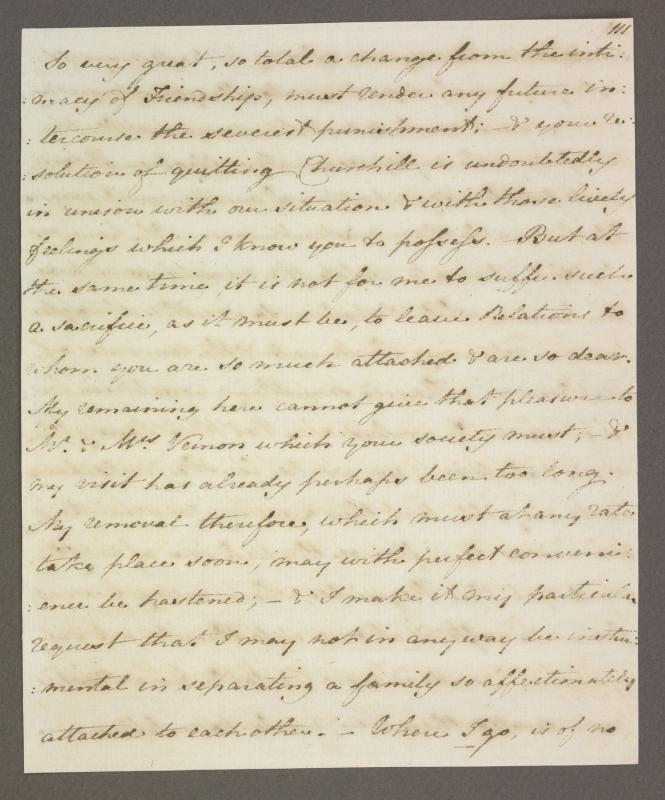 111
So very great, so total a change from the inti:
:macy of Friendship, must render any future in:
:tercourse the severest punishment; – & your re:
:solution of quitting Churchill is undoubtedly
in unison with our situation & with those lively
feelings which I know you to possess. – But at
the same time, it is not for me to suffer such
a sacrifice, as it must be, to leave Relations to
whom you are so much attached & are so dear.
My remaining here cannot give that pleasure to
Mr. & Mrs Vernon which your society must; – &
my visit has already perhaps been too long.
My removal therefore, which must at any rate
take place soon, may with perfect conveni:
:ence be hastened; – & I make it my particular
request that I may not in any way be instru:
:mental in separating a family so affectionately
attached to each other. – Where I go, is of no